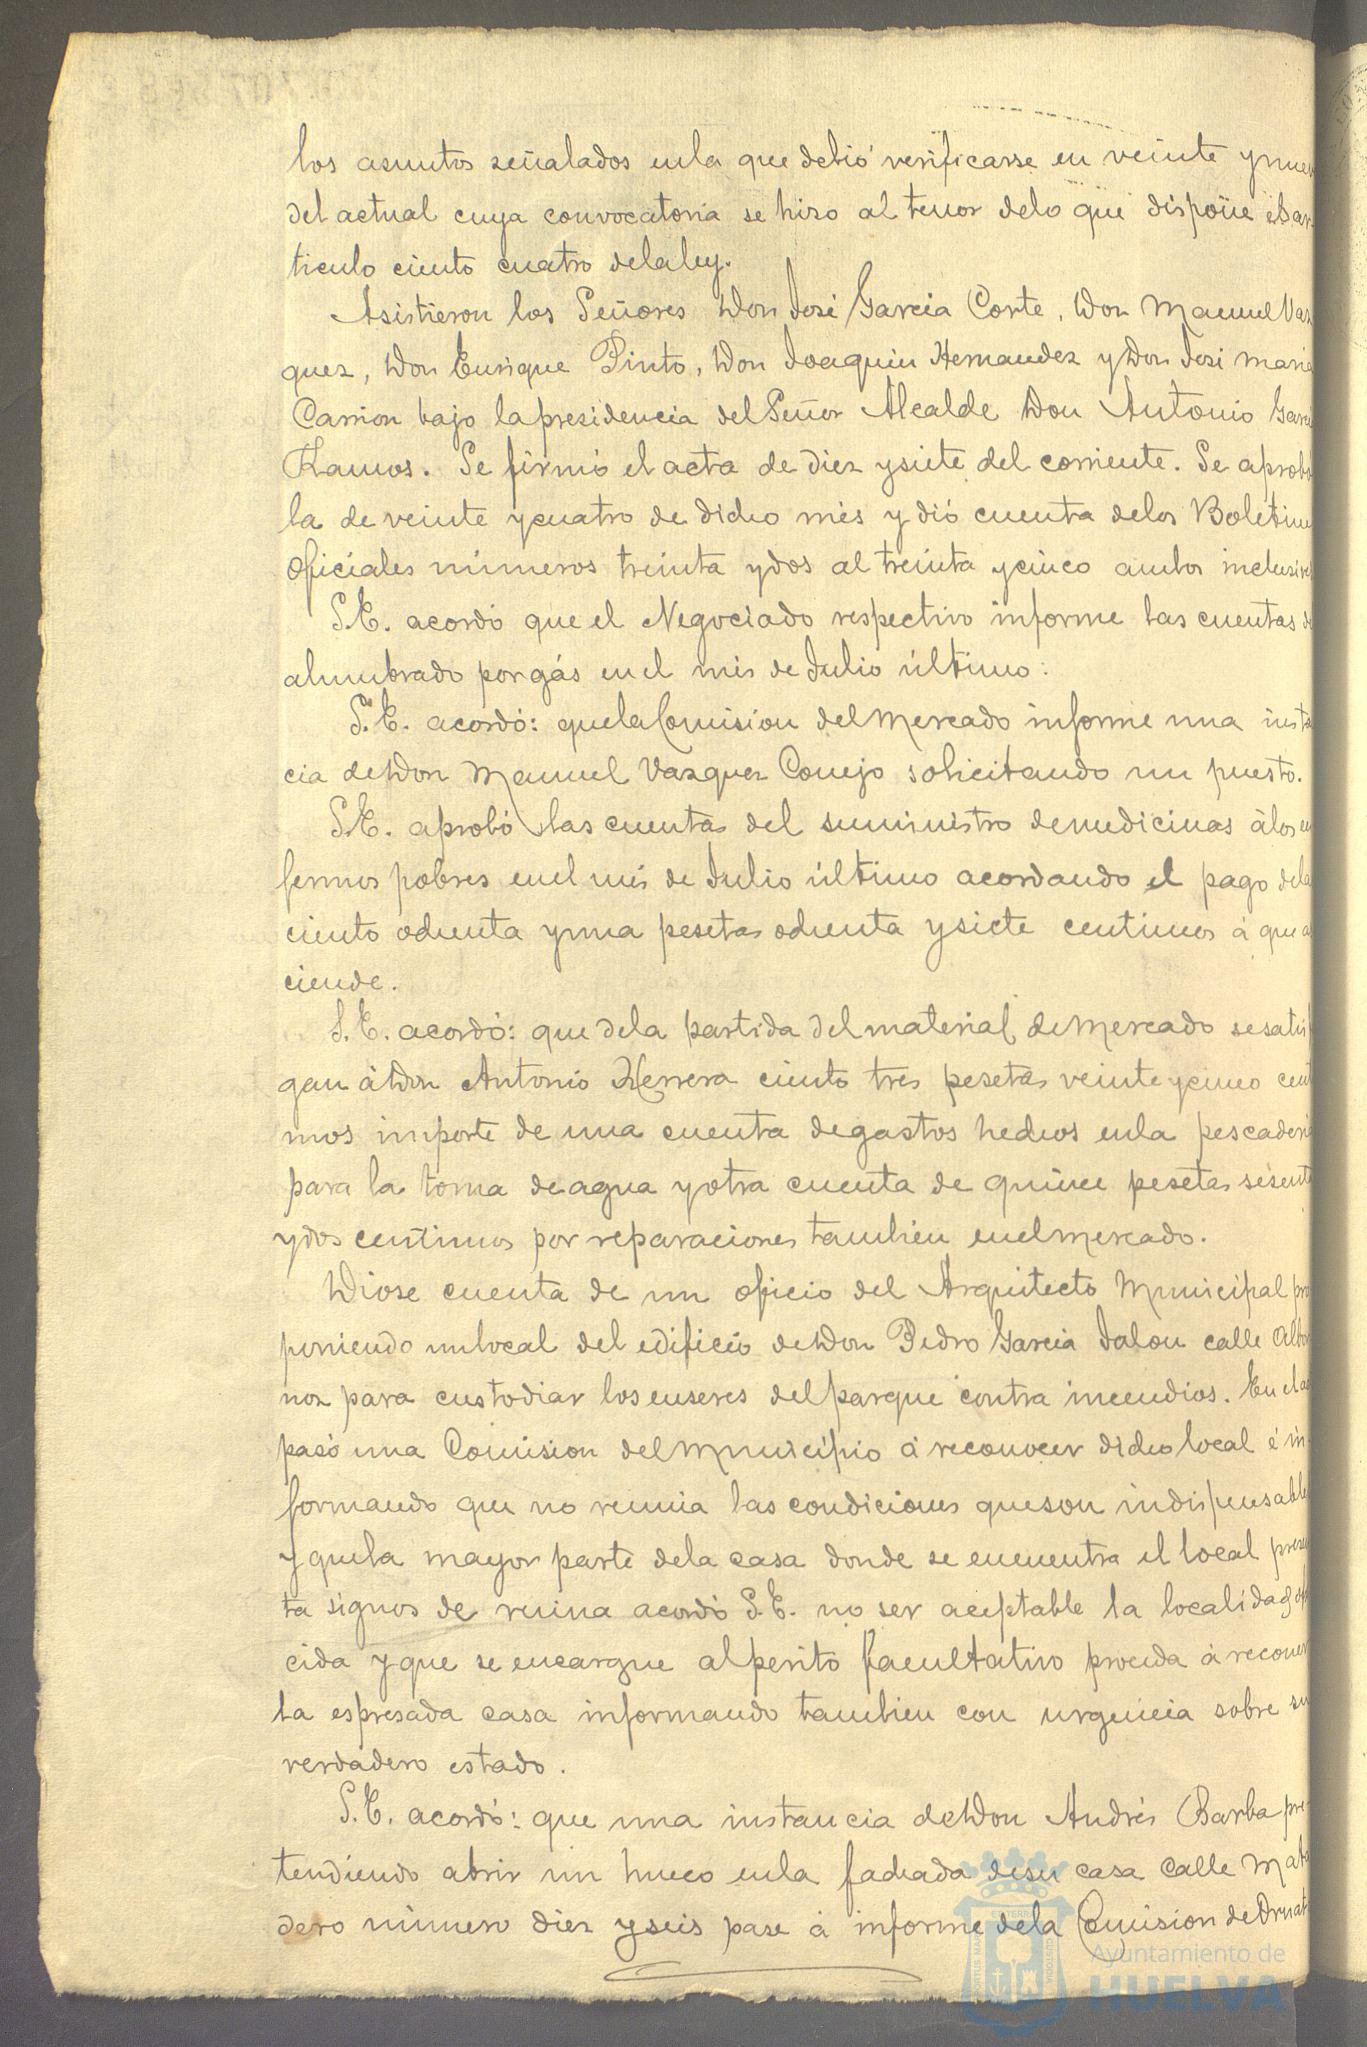 los asuntos señalados enla que debió verificarse en veinte ynuev
del actual cuya convocatoria se hizo al tenor delo que dispone el ar-
ticulo ciento cuatro delaley.
Asistieron los Señores Don José Garcia Corte, Don Manuel Vaz
quez, Don Enrique Pinto, Don Joaquin Hernandez y Don José Maria
Carrion bajo lapresidencia del Señor Alcalde Don Antonio Garcia
Ramos. Se firmó el acta de diez ysiete del corriente. Se aprobó
la de veinte ycuatro de dicho més y dió cuenta delos Boletines
Oficiales números treinta ydos al treinta ycinco ambos inclusive
S.E. acordó que el Negociado respectivo informe las cuentas de
alumbrado porgás enel més de Julio último:
S.E. acordó: quelaComision delMercado informe una insta
cia deDon Manuel Vazquez Conejo solicitando un puesto.
S.E. aprobó las cuentas del suministro demedicinas álos en
fermos pobres enel més de Julio último acordando el pago dela
ciento ochenta yuna pesetas ochenta ysiete centimos á que as
ciende.
S.E. acordó: que dela partida delmaterial deMercado sesatis
gan áDon Antonio Herrera ciento tres pesetas veinteycinco cent
mos importe de una cuenta degastos hechos enla pescaderia
para la toma deagua yotra cuenta de quince pesetas sesenta
ydos centimos por reparaciones tambien enelmercado.
Diose cuenta de un oficio del Arquitecto Municipal pro
poniendo unlocal del edificio deDon Pedro Garcia Jalon calle Albor
noz para custodiar losenseres delparque contra incendios. En el ac
pasó una Comision delMunicipio á reconocer dicholocal é in-
formando que no reunia las condiciones queson indispensables
y quela mayor parte dela casa donde se encuentra el local presen
ta signos de ruina acordó S.E. no ser aceptable la localidad ofre
cida y que se encargue alperito facultativo proceda á reconocer
la espresada casa informando tambien con urgencia sobre su
verdadero estado.
S.E. acordó: que una instancia deDon Andrés Barba pre-
tendiendo abrir un hueco enla fachada desu casa calle Mata
dero número diez yseis pase á informe dela Comision deOrnato
Ayuntamiento de
HUELVA